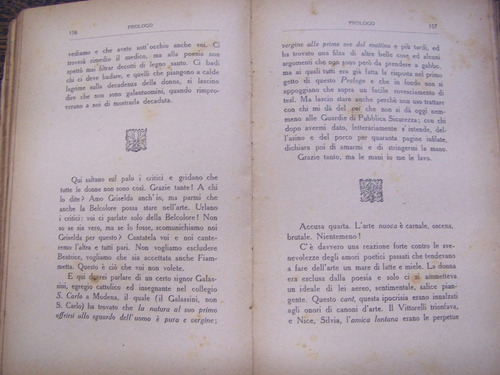 156
PROLOGO
vediamo e che avete sott'occhio anche voi. Ci
troverà rimedio il medico, ma alla poesia non
spettò mai filtrar decotti di legno santo. Ci badi
chi ci deve badare, e quelli che piangono a calde
lagrime sulla decadenza della donna, si lascino
dire che non sono galantuomini, quando rimprove-
rano a noi di mostrarla decaduta.
Qui saltano sul palo i critici e gridano che
tutte le donne non sono così. Grazie tante! A chi
lo dite? Amo Griselda anch'io, ma pare a me che
anche la Belcolore possa stare nell'arte. Urlano
i critici: voi ci parlate solo della Belcolore! Non
so se sia vero, ma se lo fosse, scomunichiamo noi
Griselda per questo? Cantatela voi e noi cante-
remo l'altra e tutti pari. Non vogliamo escludere
Beatrice, vogliamo che sia accettata anche Fiam-
metta. Questo è ciò che voi non volete.
E qui dovrei parlare di un certo signor Galas-
sini, egregio cattolico ed insegnante nel collegio
S. Carlo a Modena, il quale (il Galassini, non
S. Carlo) ha trovato che la natura al suo primo
offrirsi allo sguardo dell'uomo è pura e vergine;
PROLOGO
157
vergine alle prime ore del mattino e più tardi, ed
ha trovato una filza di altre cose belle ed alcuni
argomenti che non sono però da prendere a gabbo,
ma ai quali tutti era già fatta la risposta nel primo
getto di questo Prologo e che in fondo non si
appoggiano che sopra un facile rovesciamento di
tesi. Ma lascio stare anche perchè non uso trattare
con chi mi dà del voi che non si dà oggi nem-
meno alle Guardie di Pubblica Sicurezza; con chi
dopo avermi dato, letterariamente s'intende, del-
l'asino e del porco per quaranta pagine infilate,
dichiara poi di amarmi e di stringermi la mano.
Grazie tanto, ma le mani io me le lavo.
Accusa quarta. L'arte nuova è carnale, oscena,
brutale. Nientemeno!
C'è davvero una reazione forte contro le sve-
nevolezze degli amori poetici passati che tendevano
a fare dell'arte un mare di latte e miele. La donna
era esclusa dalla poesia e solo ci si ammetteva
un ideale di lei aereo, sentimentale, salice pian-
gente. Questo cant, questa ipocrisia erano innalzati
agli onori di canoni d'arte. Il Vittorelli trionfava,
e Nice, Silvia, l'amica lontana erano le perpetue